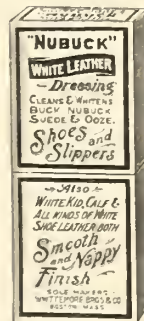 "NUBUCK"
WHITE LEATHER
Dressing
CLEANS & WHITENS
BUCK NUBUCK
SUEDE & OOZE.
Shoes and
Slippers
ALSO
WHITE KID, CALF &
ALL KINDS OF WHITE
SHOE LEATHER BOTH
Smooth
and Nappy
Finish
SOLE MAKERS
WHITTEMORE BROS & CO
BOSTON MASS